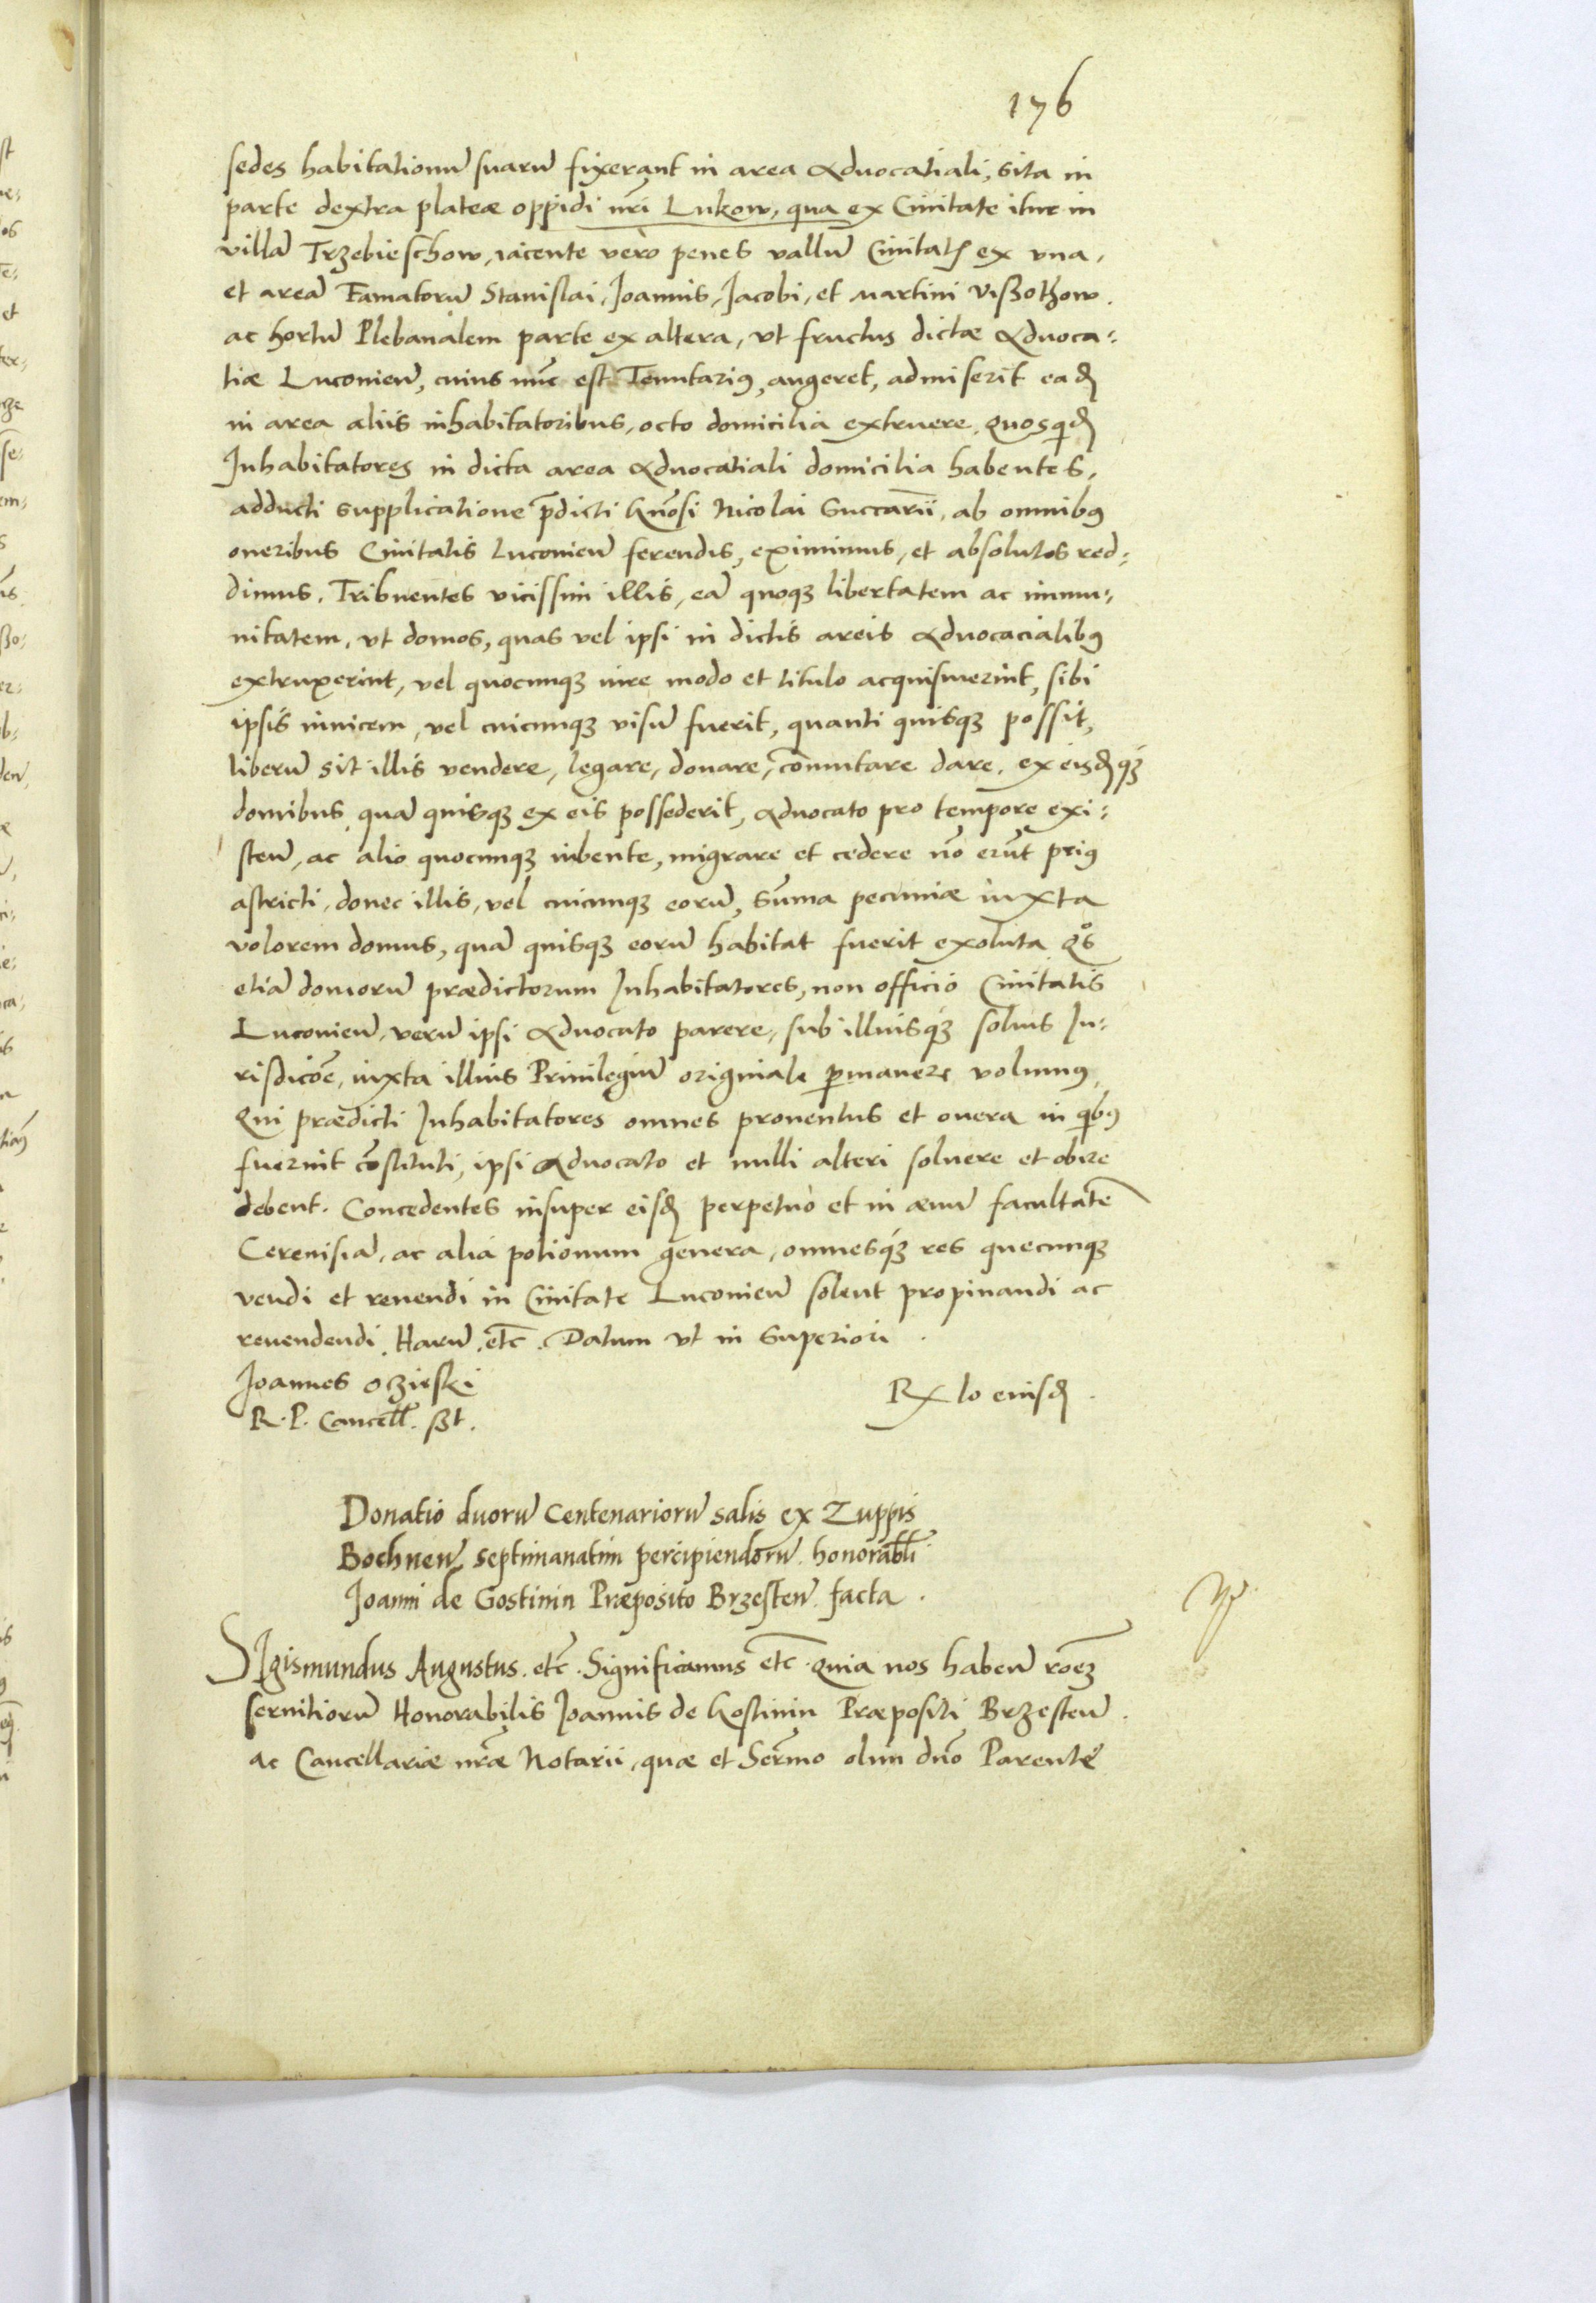 176
sedes habitationũ suarũ fixerant in area Aduocatiali, sita in
parte dextra plateæ oppidi nr̃i Lukow, qua ex Ciuitate itur in
villã Trzebieschow, iacente vero penes vallũ Ciuitat; ex vna,
et areã Famatorũ Stanislai, Joannis, Jacobi, et Martini
ac hortũ Plebanalem parte ex altera, vt fructus dictæ Aduoca-
tiæ Luconien̄, cuius nũc est Tenutariꝰ, augeret, admiserit eaď
in area aliis inhabitatoribus, octo domicilia extruere. Quosqď
Inhabitatores in dicta area Aduocatiali domicilia habentes,
adducti supplicatione p̄dicti Gn̄osi Nicolai Succarii, ab omnibꝰ
oneribus Ciuitatis Luconien̄ ferendis, eximimus, et absolutos red-
dimus. Tribuentes vicissim illis, eã quoqꝫ libertatem ac immu-
nitatem, vt domos, quas vel ipsi in dictis areis Aduocacialibꝰ
extruxerint, vel quocunqꝫ iure modo et titulo acquisiuerint, sibi
ipsis inuicem, vel cuicunqꝫ visũ fuerit, quanti quisqꝫ possit,
liberũ sit illis vendere, legare, donare, cõmutare dare, ex eisďqꝫ
domibus quã quisqꝫ ex eis possederit, Aduocato pro tempore exi-
sten̄, ac alio quocunqꝫ iubente, migrare et cedere nõ erũt priꝰ
astricti, donec illis, vel cuicunqꝫ eorũ, sũma pecuniæ iuxta
volorem domus, quã quisqꝫ eorũ habitat fuerit exoluta Qos
etiã domorũ prædictorum Inhabitatores, non officio Ciuitatis
Luconien̄, verũ ipsi Aduocato parere, sub illiusqꝫ solius Ju-
risdicõe, iuxta illius Priuilegiũ originale p̱manere volumꝰ,
Qui prædicti Inhabitatores omnes prouentus et onera in qbꝰ
fuerint cõstituti, ipsi Aduocato et nulli alteri soluere et obire
debent. Concedentes insuper eisď perpetuo et in æuũ facultatẽ
Cereuisiã, ac alia potionum genera, omnesqꝫ res quecunqꝫ
vendi et reuendi in Ciuitate Luconien̄ solent propinandi ac
reuendendi. Harũ. etc̃. Datum vt in Superiori.
Joannes Oczieski
R. P. Cancell. sßt.
Rx lo eiusď.
Donatio duorũ Centenariorũ salis ex Zuppis
Bochnen̄ septimanatim percipiendorũ honorabli
Joanni de Gostinin Præposito Brzesten̄ facta.
SIgismundus Augustus. etc̃. Significamus etc̃. Quia nos haben̄ rõeꝫ
seruitiorũ Honorabilis Joannis de Gostinin Præpositi Brzesten̄
ac Cancellariæ nr̃æ Notarii, quæ et Serm̃o olim dño Parente